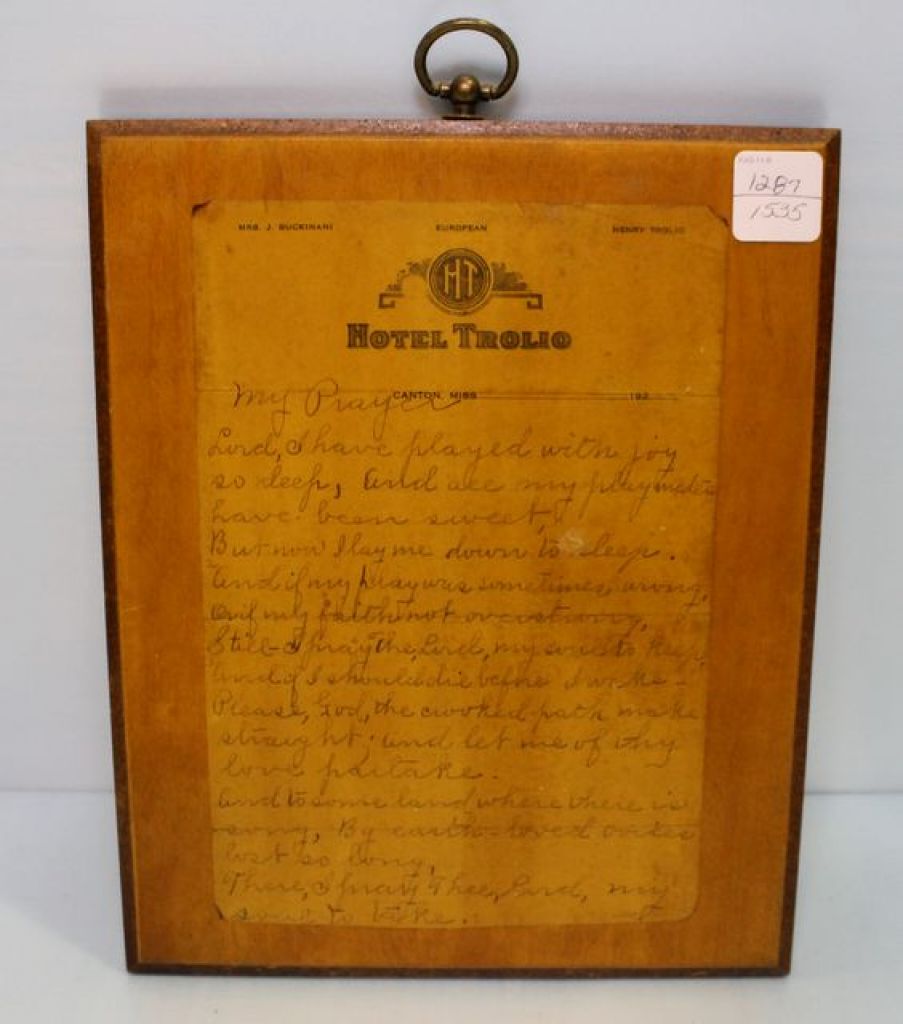 1287
1535
MRS. J. BUCKINANI EUROPEAN HENRY TROLIO
HT
HOTEL TROLIO
CANTON, MISS 192
My Prayer
Lord, I have played with joy
so deep, and all my playmates
have been sweet,
But now I lay me down to sleep.
And if my play was sometimes wrong,
And my faith not over strong,
Still I pray the, Lord, my soul to keep,
And if I should die before I wake -
Please, God, the crooked path make
straight; and let me of thy
love partake.
And to some land where there is
song, By earth loved voices
lost so long,
There, I pray Thee, Lord, my
soul to take.